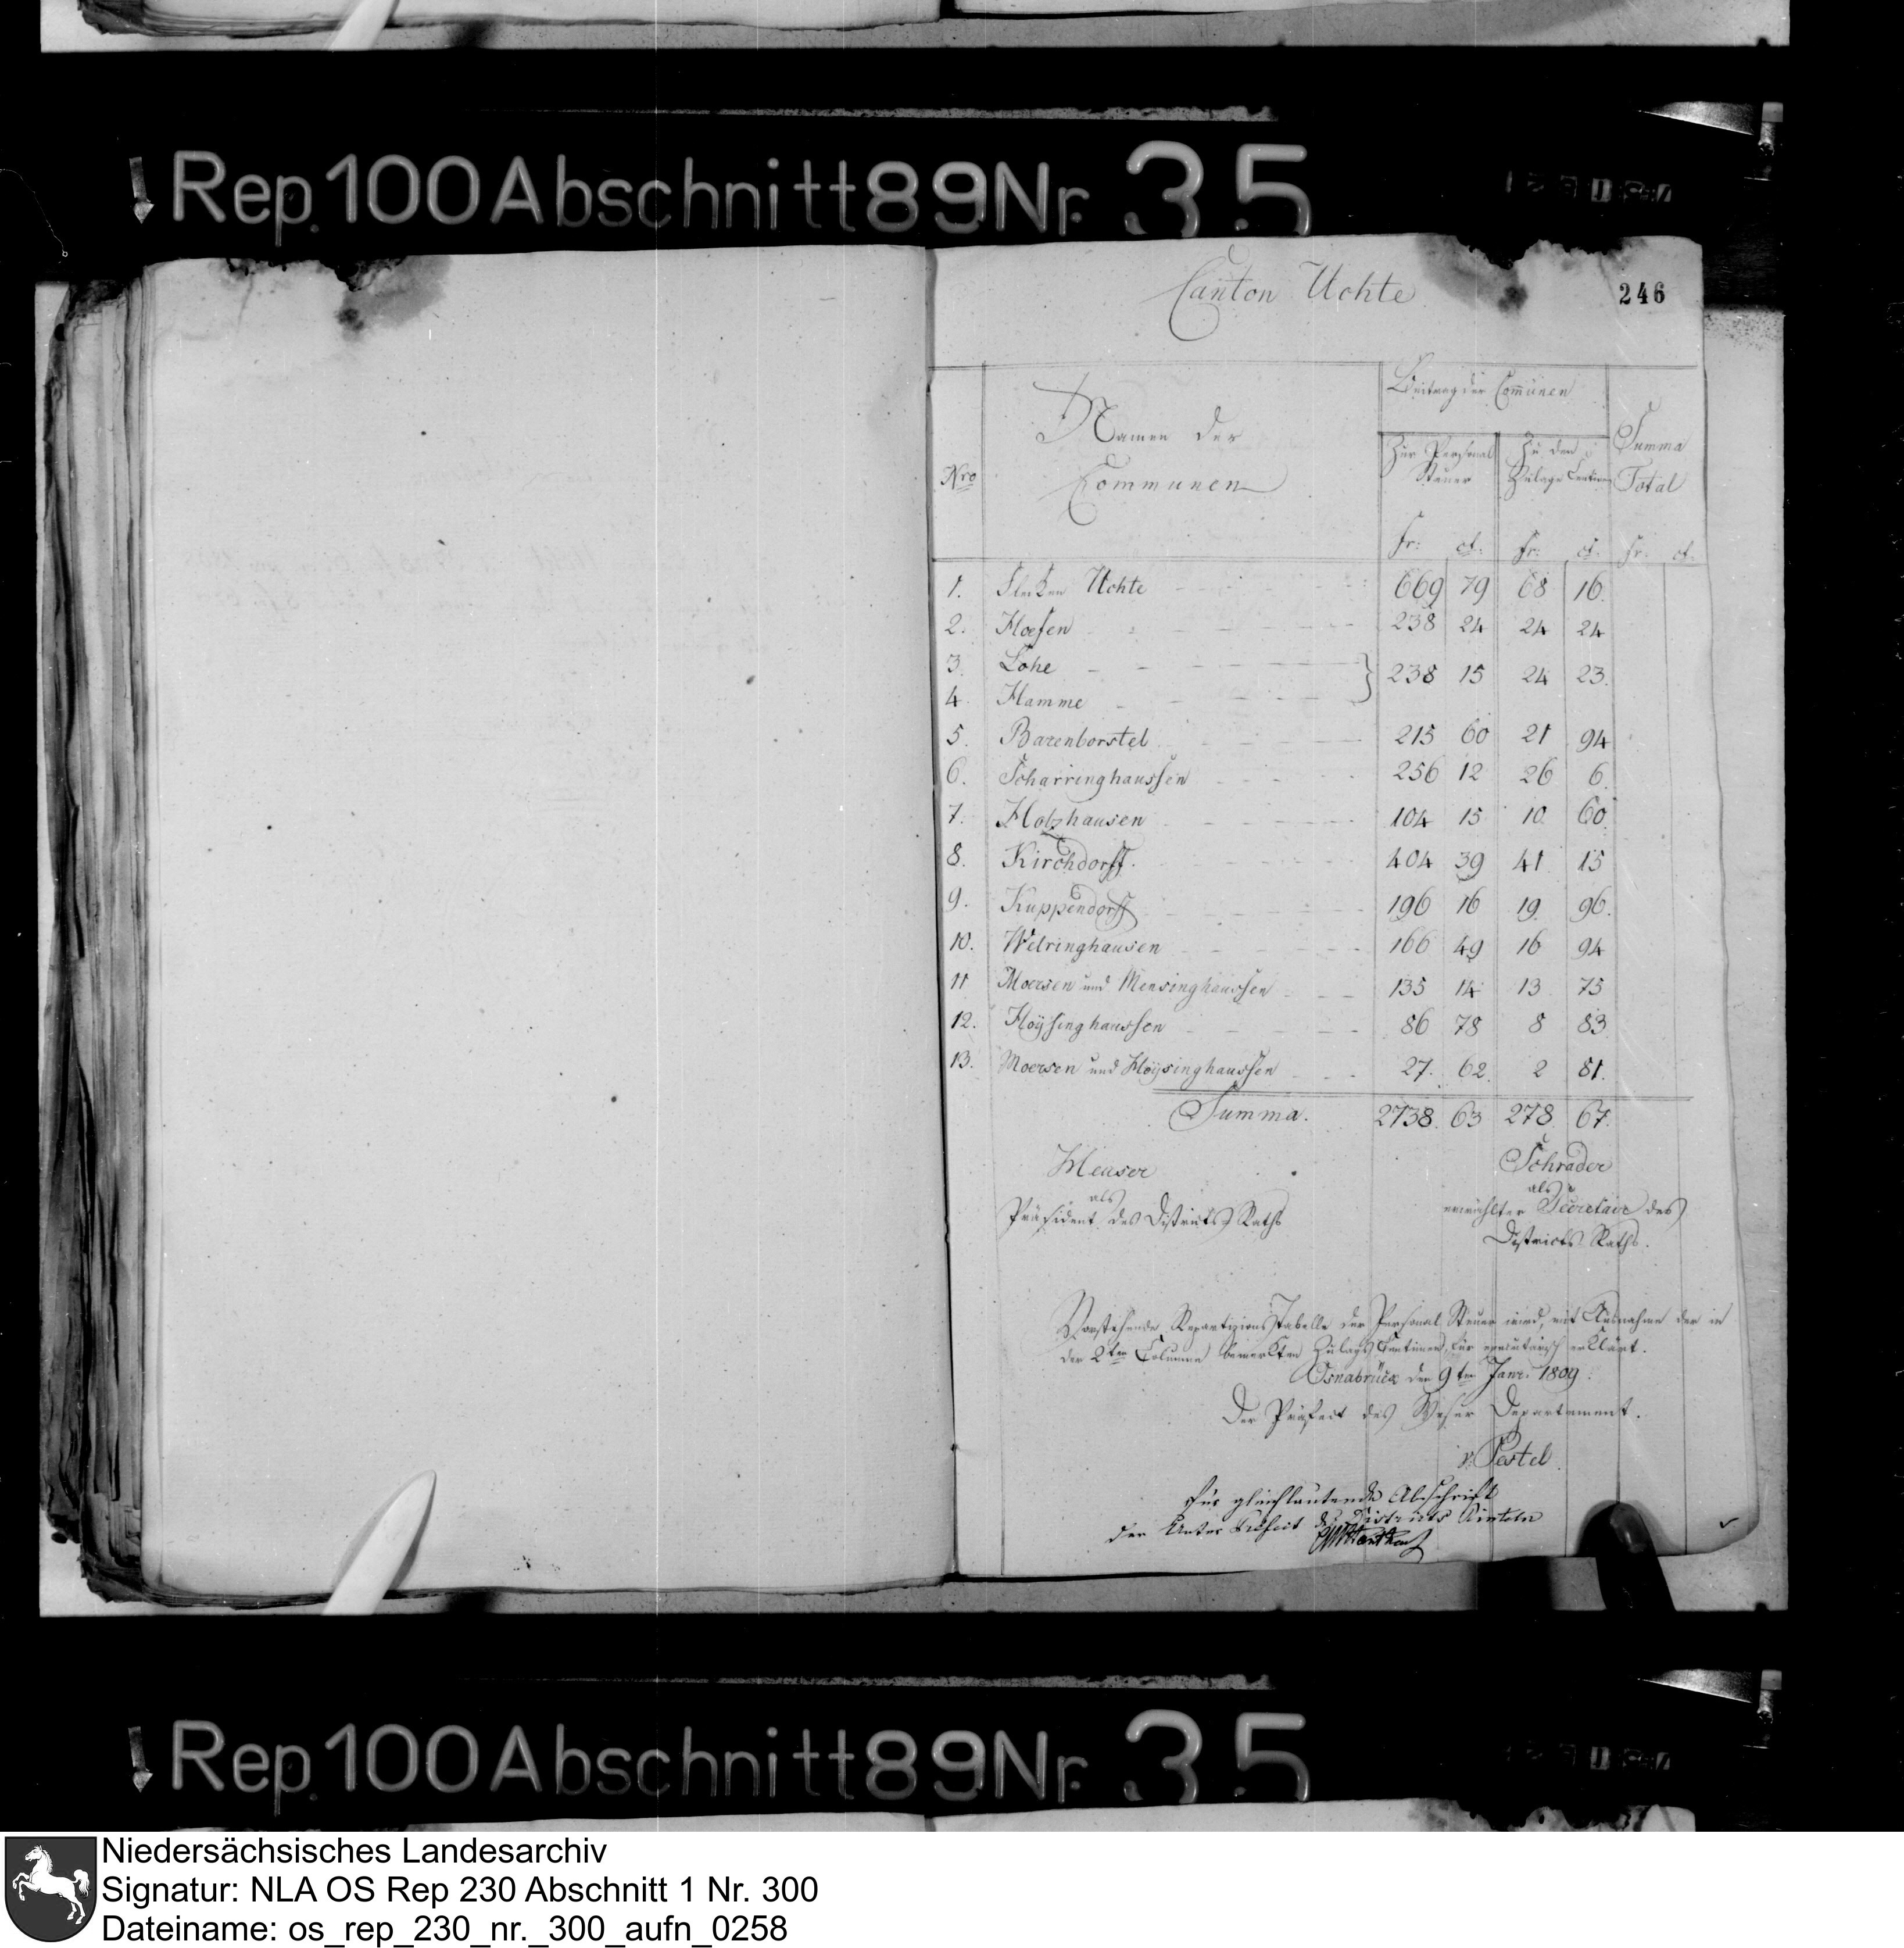 Rep. 100 Abschnitt 89 Nr. 35
246
Canton Uchte
Nro
Namen der
Communen
Beitrag der Com̃unen
Zur Personal
Steuer
Zu den
Zulage Centimen
Summa
Total
fr: ct: fr: ct: fr: ct:
1. Flecken Uchte 669 79 68 16.
2. Hoefen 238 24 24 24
3. Lohe } 238 15 24 23.
4. Hamme
5. Barenborstel 215 60 21 94
6. Scharringhaussen 256 12 26 6.
7. Holzhausen 104 15 10 60.
8. Kirchdorff. 404 39 41 15
9. Kuppendorff 196 16 19 96.
10. Welringhausen 166 49 16 94
11 Moersen und Mensinghaussen 135 14 13 75
12. Hoÿsinghaussen 86 78 8 83
13. Moersen und Hoÿsinghaussen 27. 62. 2 81.
Summa. 2738. 63 278. 67.
Heuser
als
Präsident des Districts Raths
Schrader
als
erwählter Secretair des
Districts Raths.
Vorstehende Repartizions Tabelle der Personal Steuer wird, mit Ausnahme der in
der 2ten Columne bemerkten Zulage Centimen, für executorisch erklärt.
Osnabrück den 9ten Janr. 1809.
Der Präfect des Weser Departement.
v. Pestel.
für gleichlautende Abschrift
der Unter Präfect des Districts Rinteln
Rep. 100 Abschnitt 89 Nr. 35
Niedersächsisches Landesarchiv
Signatur: NLA OS Rep 230 Abschnitt 1 Nr. 300
Dateiname: os_rep_230_nr._300_aufn_0258